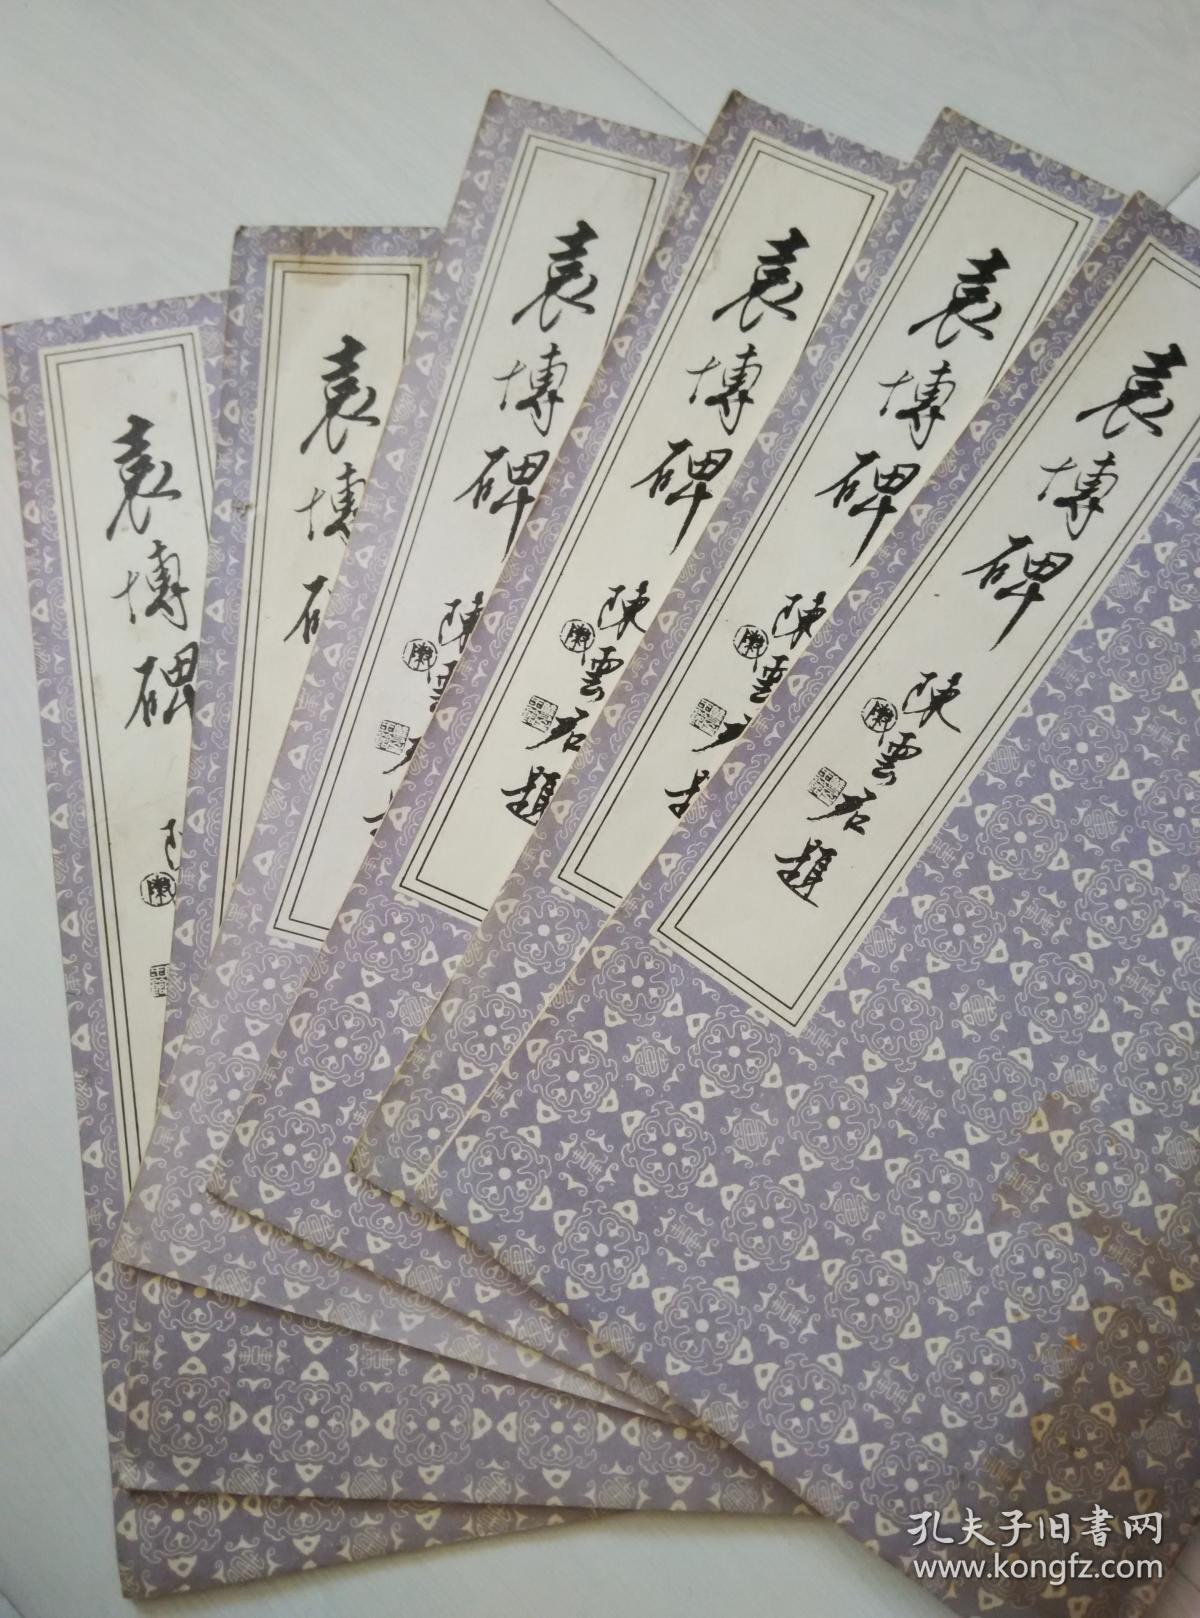 袁博碑
袁博碑
袁博碑
陳雲
袁博碑
陳雲君題
袁博碑
陳雲君題
袁博碑
陳雲君題
孔夫子旧書网
www.kongfz.com